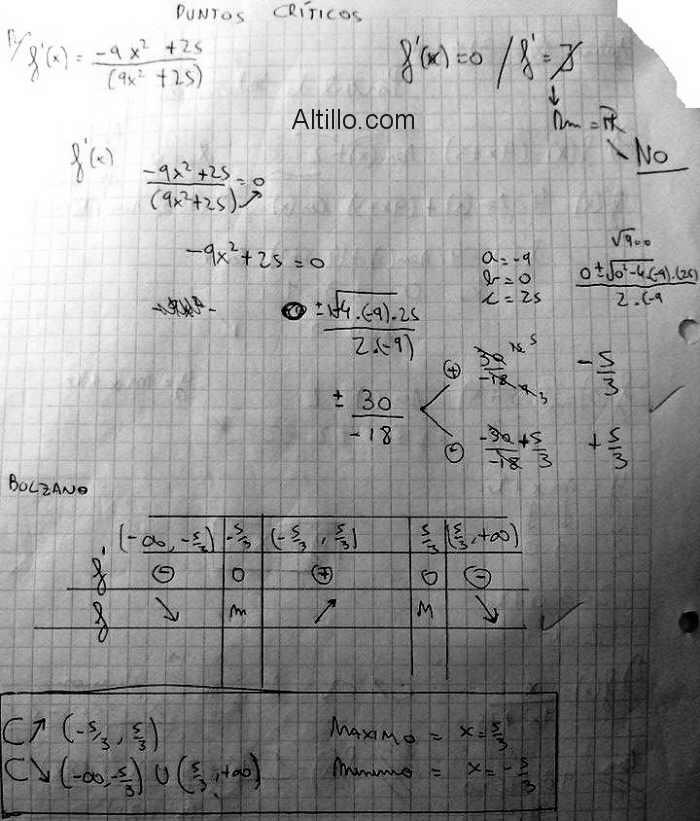 PUNTOS CRÍTICOS
f'(x) = -9x² + 25 / (9x² + 25)
f'(x) = 0 / f' = ∄
Altillo.com
Dm = ℝ
NO
f'(x)
-9x² + 25 / (9x² + 25) = 0
-9x² + 25 = 0
a = -9
b = 0
c = 25
√900
0 ± √0² - 4.(-9).(25) / 2.(-9
± √-4.(-9).25 / 2.(-9)
± 30 / -18
⊕ 30 / -18 5 3
- 5/3
⊖ -30 / -18 + 5/3
+ 5/3
BOLZANO
(-∞, -5/3) -5/3 (-5/3, 5/3) 5/3 (5/3, +∞)
f' ⊖ 0 ⊕ 0 ⊖
f ↘ m ↗ M ↘
C↗ (-5/3, 5/3) MAXIMO = x = 5/3
C↘ (-∞, -5/3) ∪ (5/3, +∞) Minimo = x = -5/3